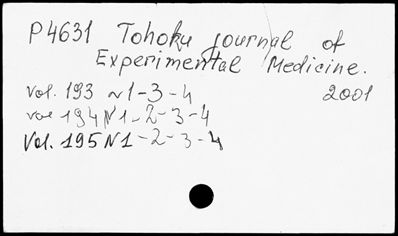 P4631 Tohoku journal of
Experimental Medicine.
vol. 193 N1-3-4 2001
vol 194 N1-2-3-4
Vol. 195 N1-2-3-4